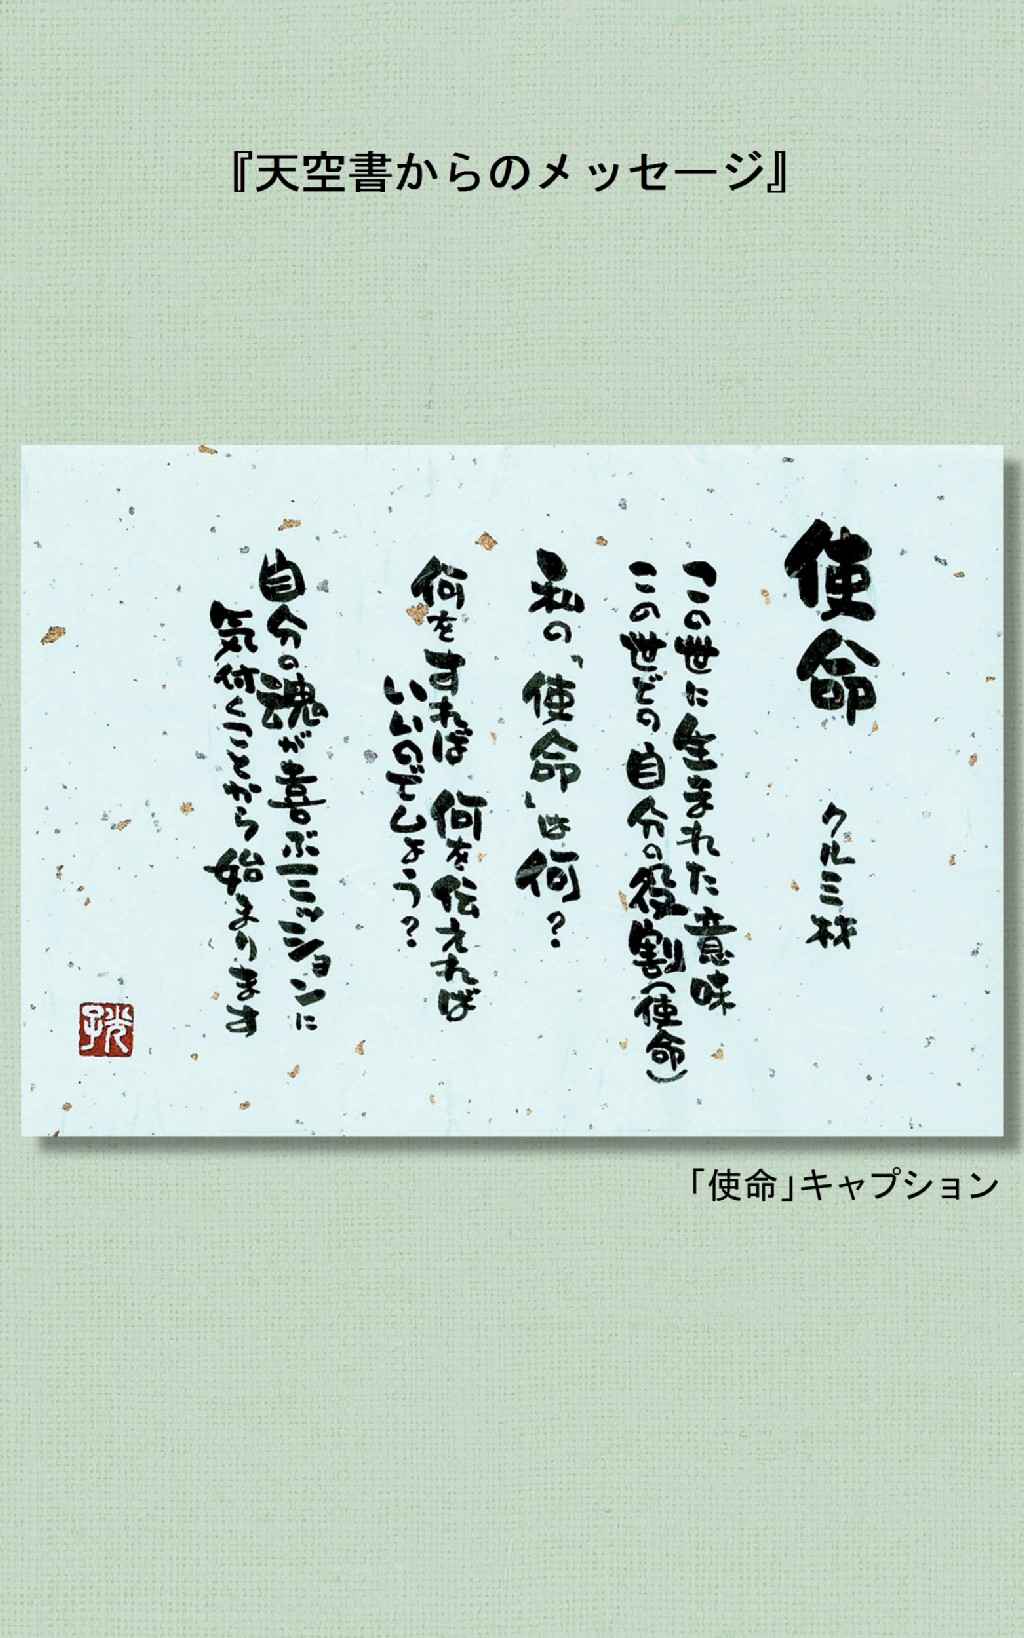 『天空書からのメッセージ』
使命
クルミ材
この世に生まれた意味
この世での自分の役割(使命)
私の「使命」は何?
何をすれば 何を伝えれば
いいのでしょう?
自分の魂が喜ぶミッションに
気付くことから始まります
「使命」キャプション